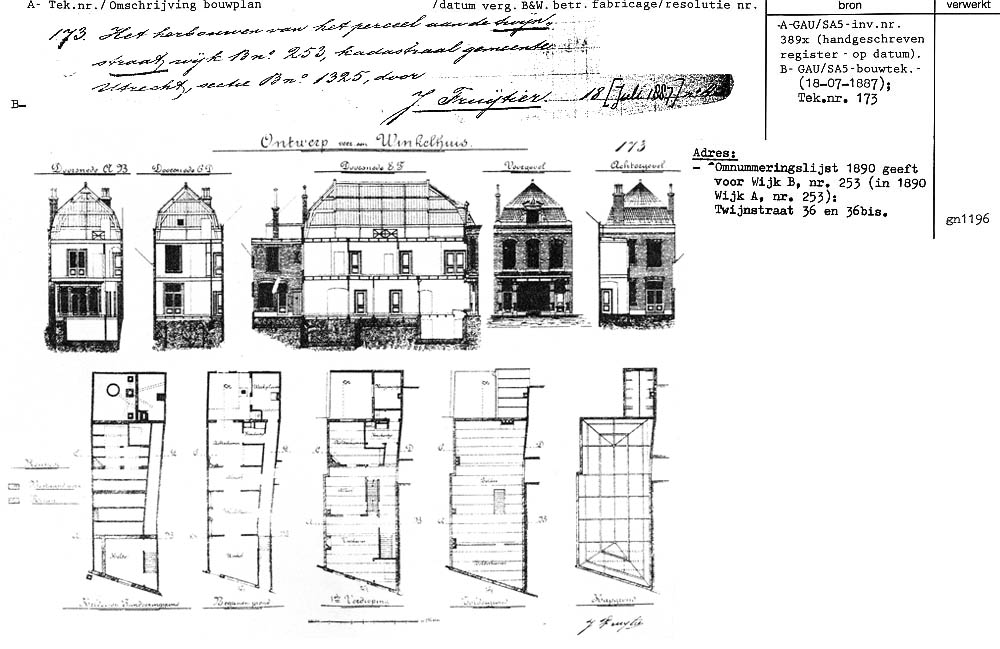 A- Tek.nr./Omschrijving bouwplan /datum verg. B&W. betr. fabricage/resolutie nr. bron verwerkt
173 Het herbouwen van het perceel aan de Twijn-
straat, wijk B no. 253, kadastraal gemeente
Utrecht, sectie B no. 1325, door
J. Fruijtier. 18 [Juli 1887]
B-
A-GAU/SA5-inv.nr.
389x (handgeschreven
register - op datum).
B- GAU/SA5-bouwtek.-
(18-07-1887);
Tek.nr. 173
Ontwerp voor een Winkelhuis.
173
Adres:
- Omnummeringslijst 1890 geeft
voor Wijk B, nr. 253 (in 1890
Wijk A, nr. 253):
Twijnstraat 36 en 36bis.
gn1196
Doorsnede A B
Doorsnede C D
Doorsnede E F
Voorgevel
Achtergevel
Werkplaats
Keuken
Zolder
Kelder
Winkel
Kelder en Fundeeringgrond
Beganen grond
1ste Verdieping
Zoldergrond
Kapgrond
J Fruijtier